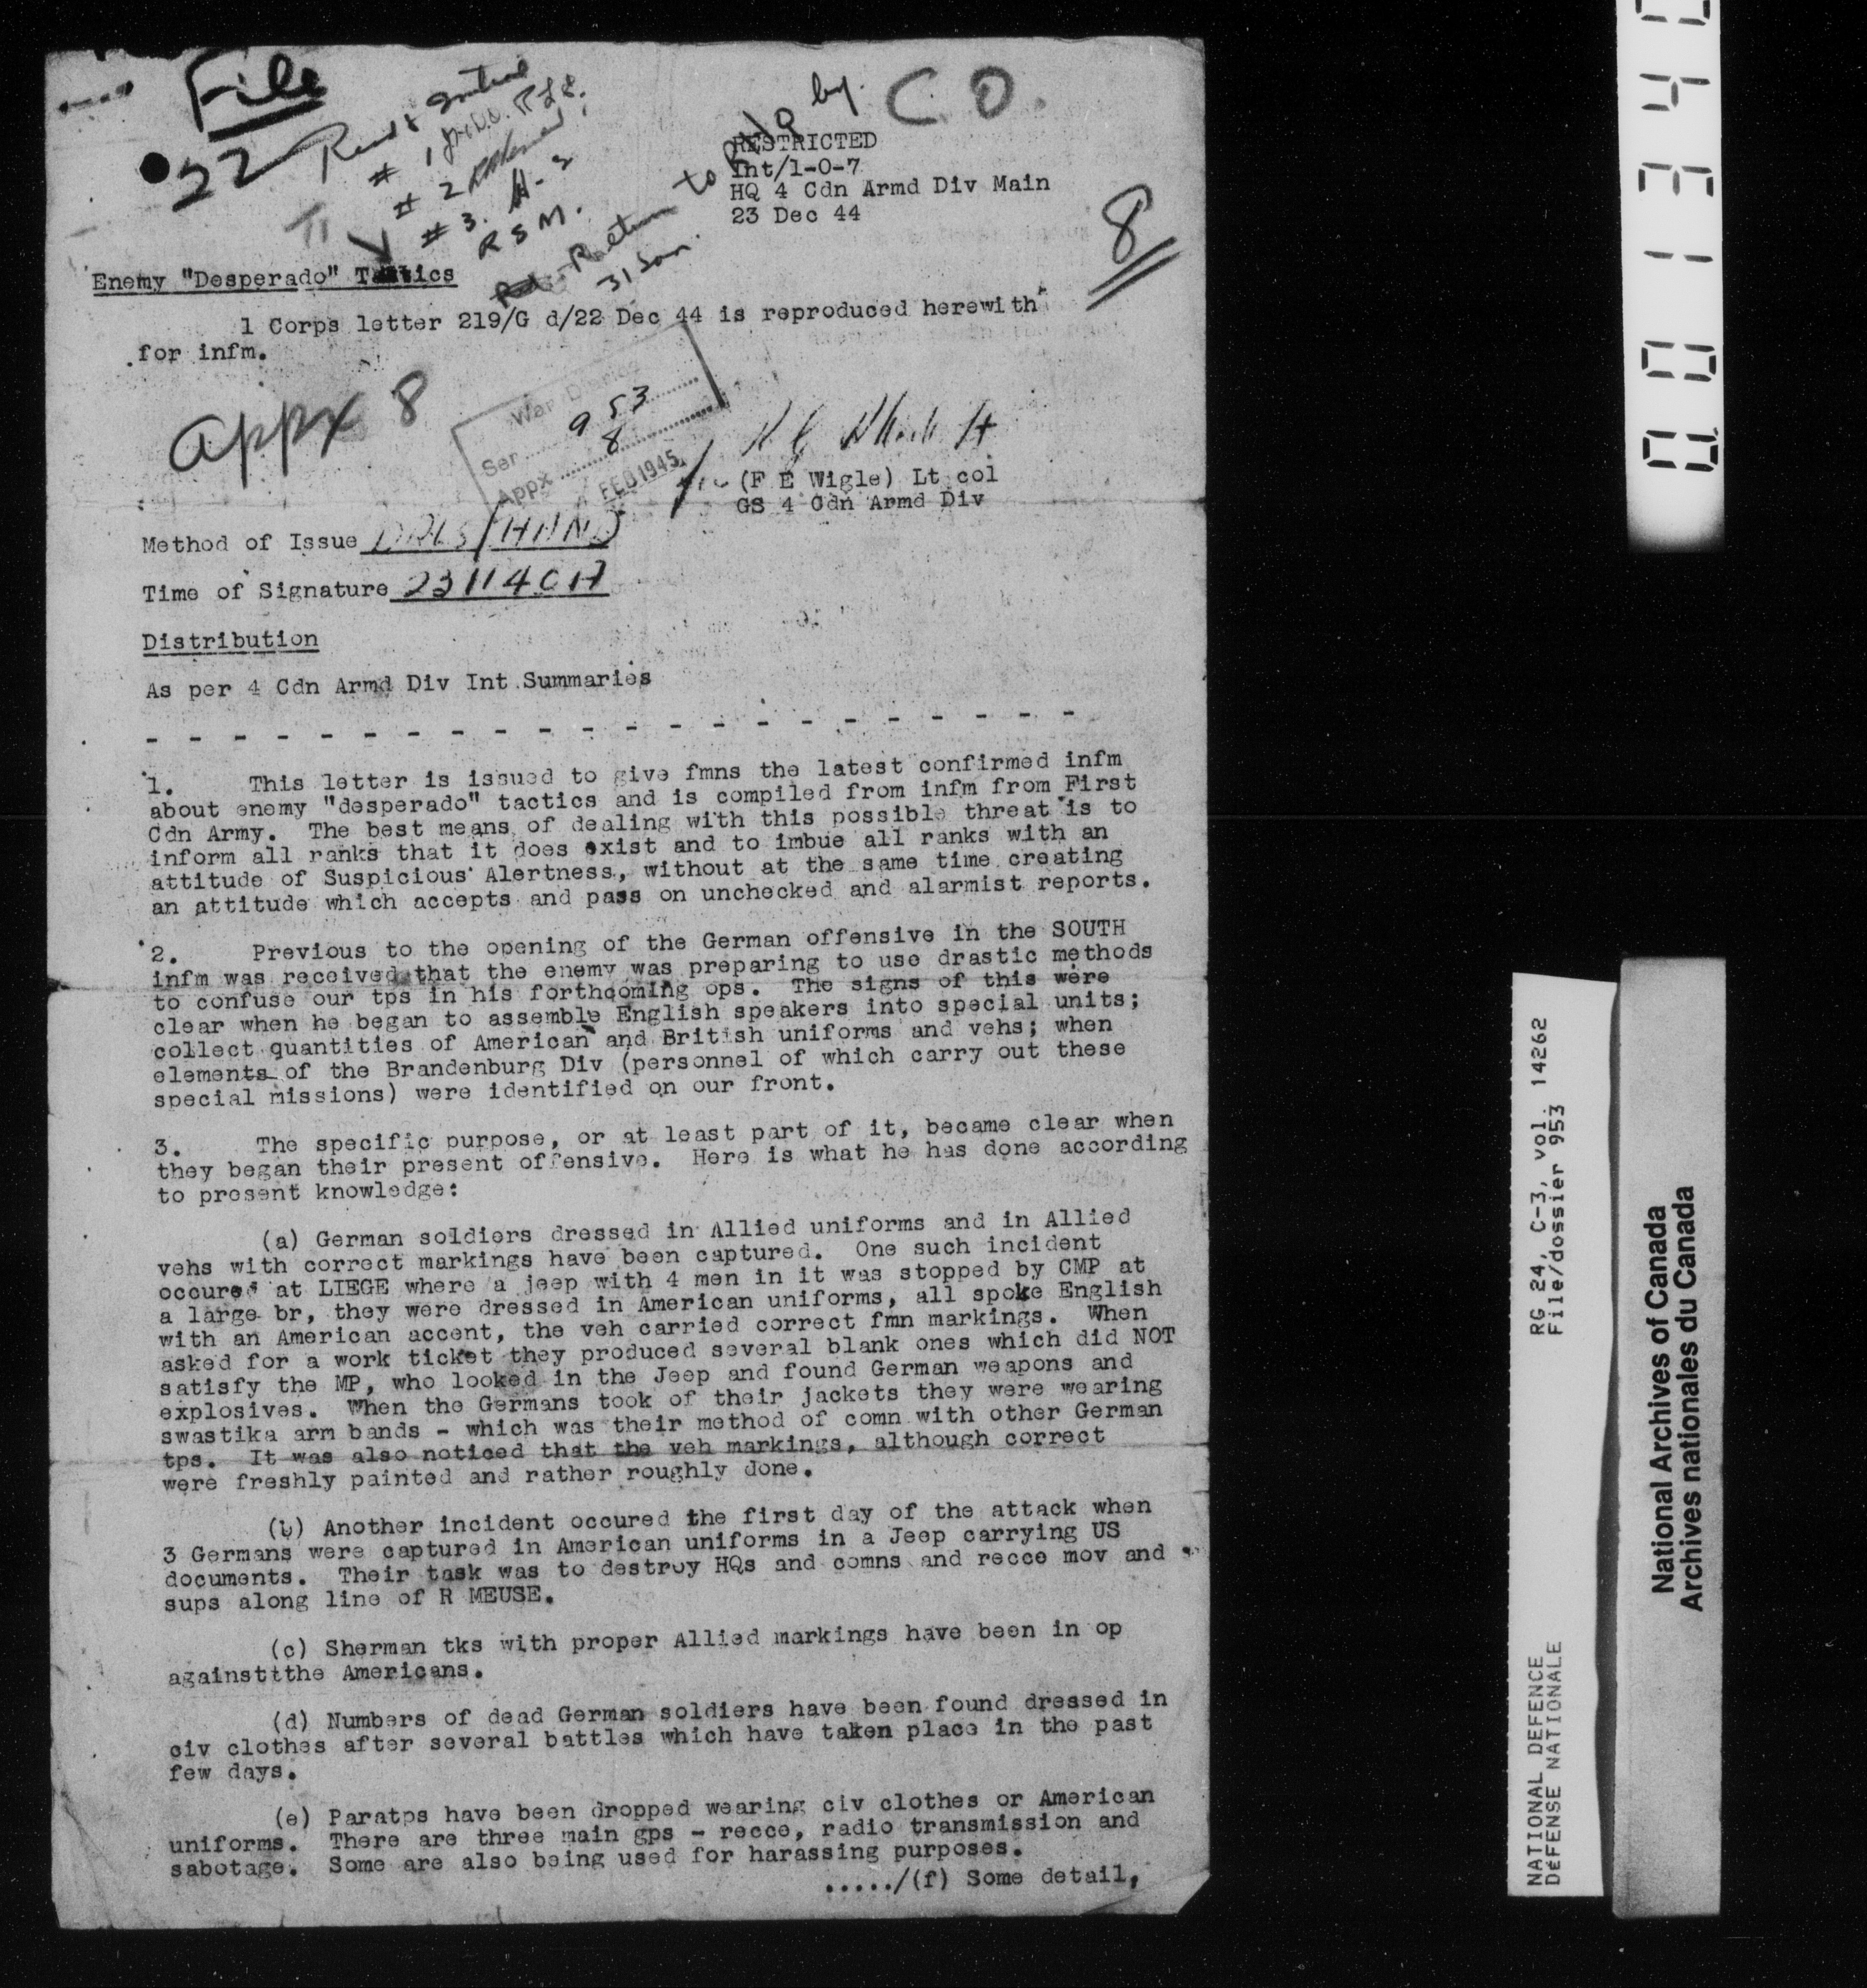 File
C.O.
22
# 1
# 2
# 3.
RSM.
Return to
by
31 Jan.
8
RESTRICTED
Int/1-0-7
HQ 4 Cdn Armd Div Main
23 Dec 44
Enemy "Desperado" Tactics
1 Corps letter 219/G d/22 Dec 44 is reproduced herewith
for infm.
Appx 8
War Diaries
Ser 953
Appx 8
FEB 1945
(F E Wigle) Lt col
GS 4 Cdn Armd Div
Method of Issue DRLS/HAND
Time of Signature 231140A
Distribution
As per 4 Cdn Armd Div Int Summaries
- - - - - - - - - - - - - - - - - - - - - -
1. This letter is issued to give fmns the latest confirmed infm
about enemy "desperado" tactics and is compiled from infm from First
Cdn Army. The best means of dealing with this possible threat is to
inform all ranks that it does exist and to imbue all ranks with an
attitude of Suspicious Alertness, without at the same time creating
an attitude which accepts and pass on unchecked and alarmist reports.
2. Previous to the opening of the German offensive in the SOUTH
infm was received that the enemy was preparing to use drastic methods
to confuse our tps in his forthcoming ops. The signs of this were
clear when he began to assemble English speakers into special units;
collect quantities of American and British uniforms and vehs; when
elements of the Brandenburg Div (personnel of which carry out these
special missions) were identified on our front.
3. The specific purpose, or at least part of it, became clear when
they began their present offensive. Here is what he has done according
to present knowledge:
(a) German soldiers dressed in Allied uniforms and in Allied
vehs with correct markings have been captured. One such incident
occured at LIEGE where a jeep with 4 men in it was stopped by CMP at
a large br, they were dressed in American uniforms, all spoke English
with an American accent, the veh carried correct fmn markings. When
asked for a work ticket they produced several blank ones which did NOT
satisfy the MP, who looked in the Jeep and found German weapons and
explosives. When the Germans took of their jackets they were wearing
swastika arm bands - which was their method of comn with other German
tps. It was also noticed that the veh markings, although correct
were freshly painted and rather roughly done.
(b) Another incident occured the first day of the attack when
3 Germans were captured in American uniforms in a Jeep carrying US
documents. Their task was to destroy HQs and comns and recce mov and
sups along line of R MEUSE.
(c) Sherman tks with proper Allied markings have been in op
againsttthe Americans.
(d) Numbers of dead German soldiers have been found dressed in
civ clothes after several battles which have taken place in the past
few days.
(e) Paratps have been dropped wearing civ clothes or American
uniforms. There are three main gps - recce, radio transmission and
sabotage. Some are also being used for harassing purposes.
...../(f) Some detail,
RG 24, C-3, vol. 14262
File/dossier 953
NATIONAL DEFENCE
DéFENSE NATIONALE
National Archives of Canada
Archives nationales du Canada